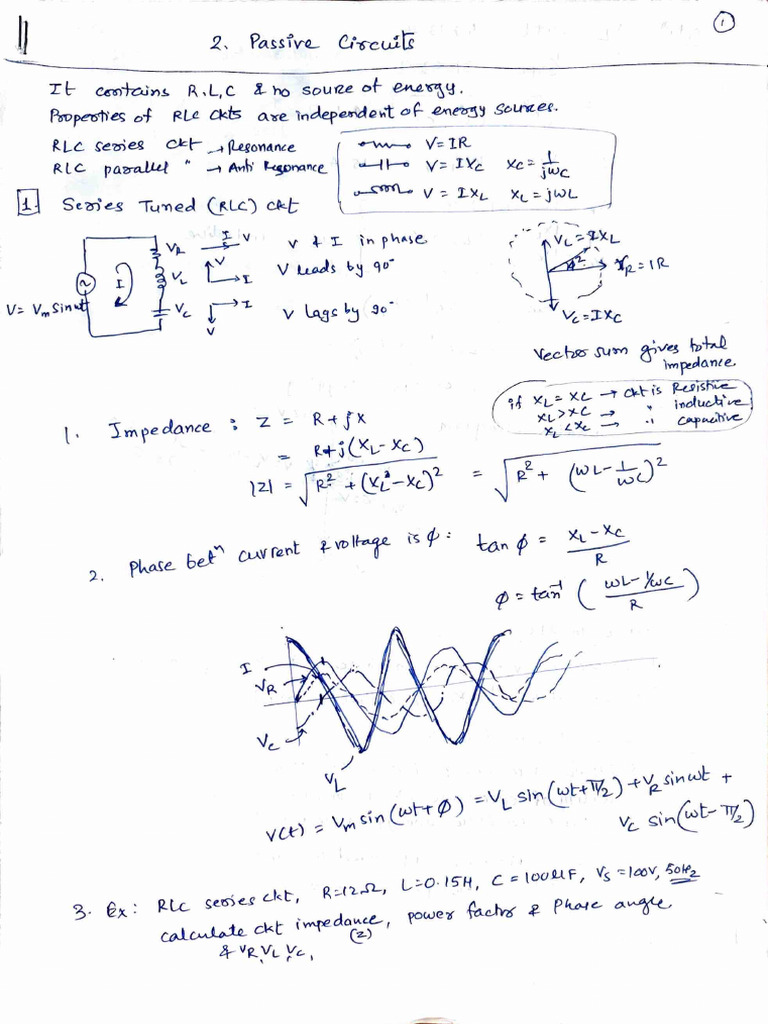 1
2. Passive Circuits
It contains R,L,C & no source of energy.
Properties of RLC ckts are independent of energy sources.
RLC series ckt → Resonance
RLC parallel " → Anti Resonance
V = IR
V = IXc Xc = 1/jωC
V = IXL XL = jωL
1. Series Tuned (RLC) ckt
VR I V V & I in phase
VL V I V leads by 90°
Vc I V V lags by 90°
I
V = Vm Sinωt
VL = IXL
Z
VR = IR
Vc = IXc
Vector sum gives total
impedance
if XL = Xc → ckt is Resistive
XL > Xc → " inductive
XL < Xc → " capacitive
1. Impedance : Z = R + jX
= R + j(XL - Xc)
|Z| = √(R² + (XL - Xc)²) = √(R² + (ωL - 1/ωC)²)
2. Phase betⁿ current & voltage is φ : tan φ = (XL - Xc)/R
φ = tan⁻¹ ((ωL - 1/ωC)/R)
I
VR
Vc
VL
V(t) = Vm sin(ωt + φ) = VL sin(ωt + π/2) + VR sinωt +
Vc sin(ωt - π/2)
3. Ex: RLC series ckt, R=12Ω, L=0.15H, C=100μF, Vs=100V, 50Hz
calculate ckt impedance, power factor & Phase angle
(Z)
& VR, VL, Vc.